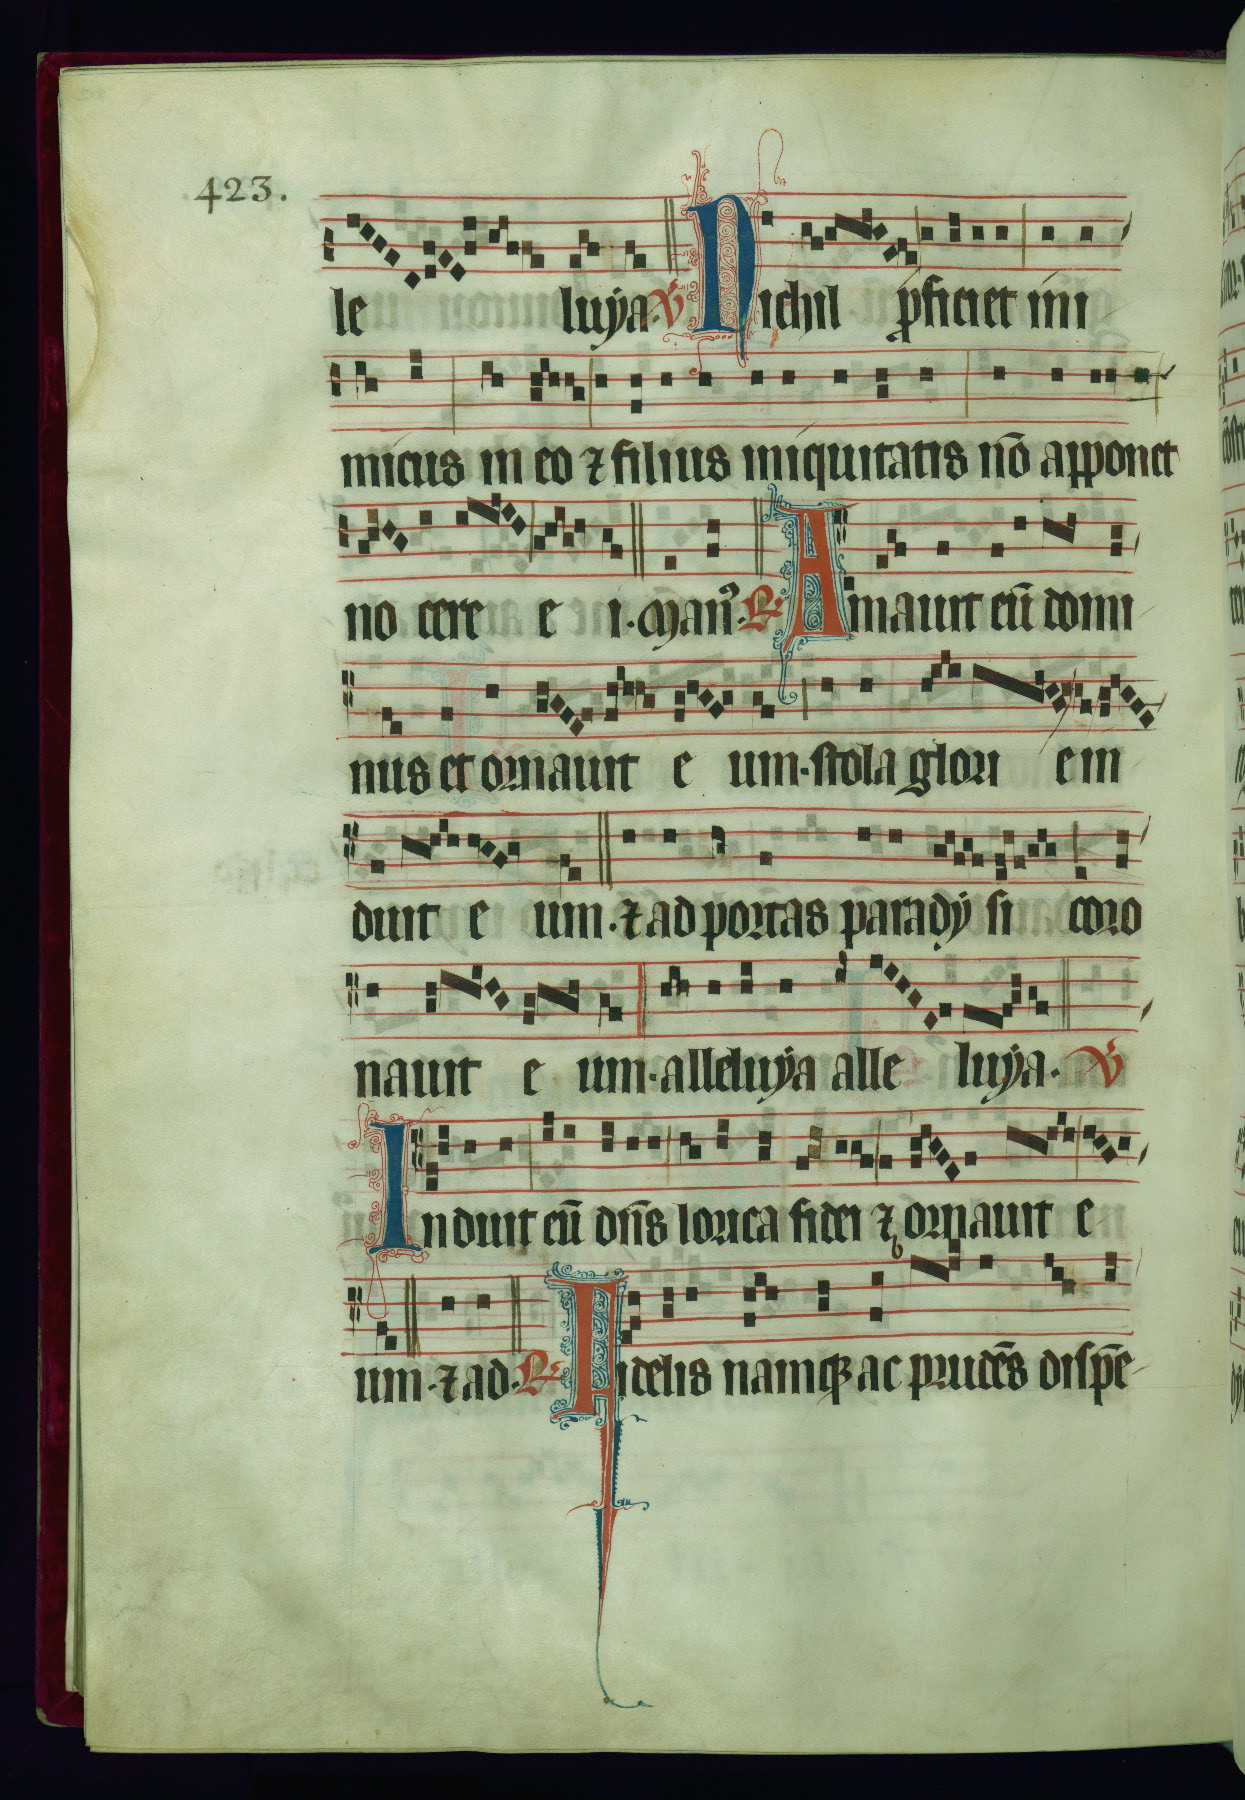 423.
le luÿa. V̊ Nichil ꝓficiet ini
micus in eo ⁊ filius iniquitatis nō apponet
no cere e i. Man᷒. ℟ Amauit eū domi
nus et ornauit e um. stola glori e in
duit e um. ⁊ ad portas paradÿ si coro
nauit e um. alleluÿa alle luÿa. V̊
Induit eū dn̄s lorica fidei ⁊ ornauit e
um. ⁊ ad. ℟ Fidelis namqꝫ ac prudēs dispē